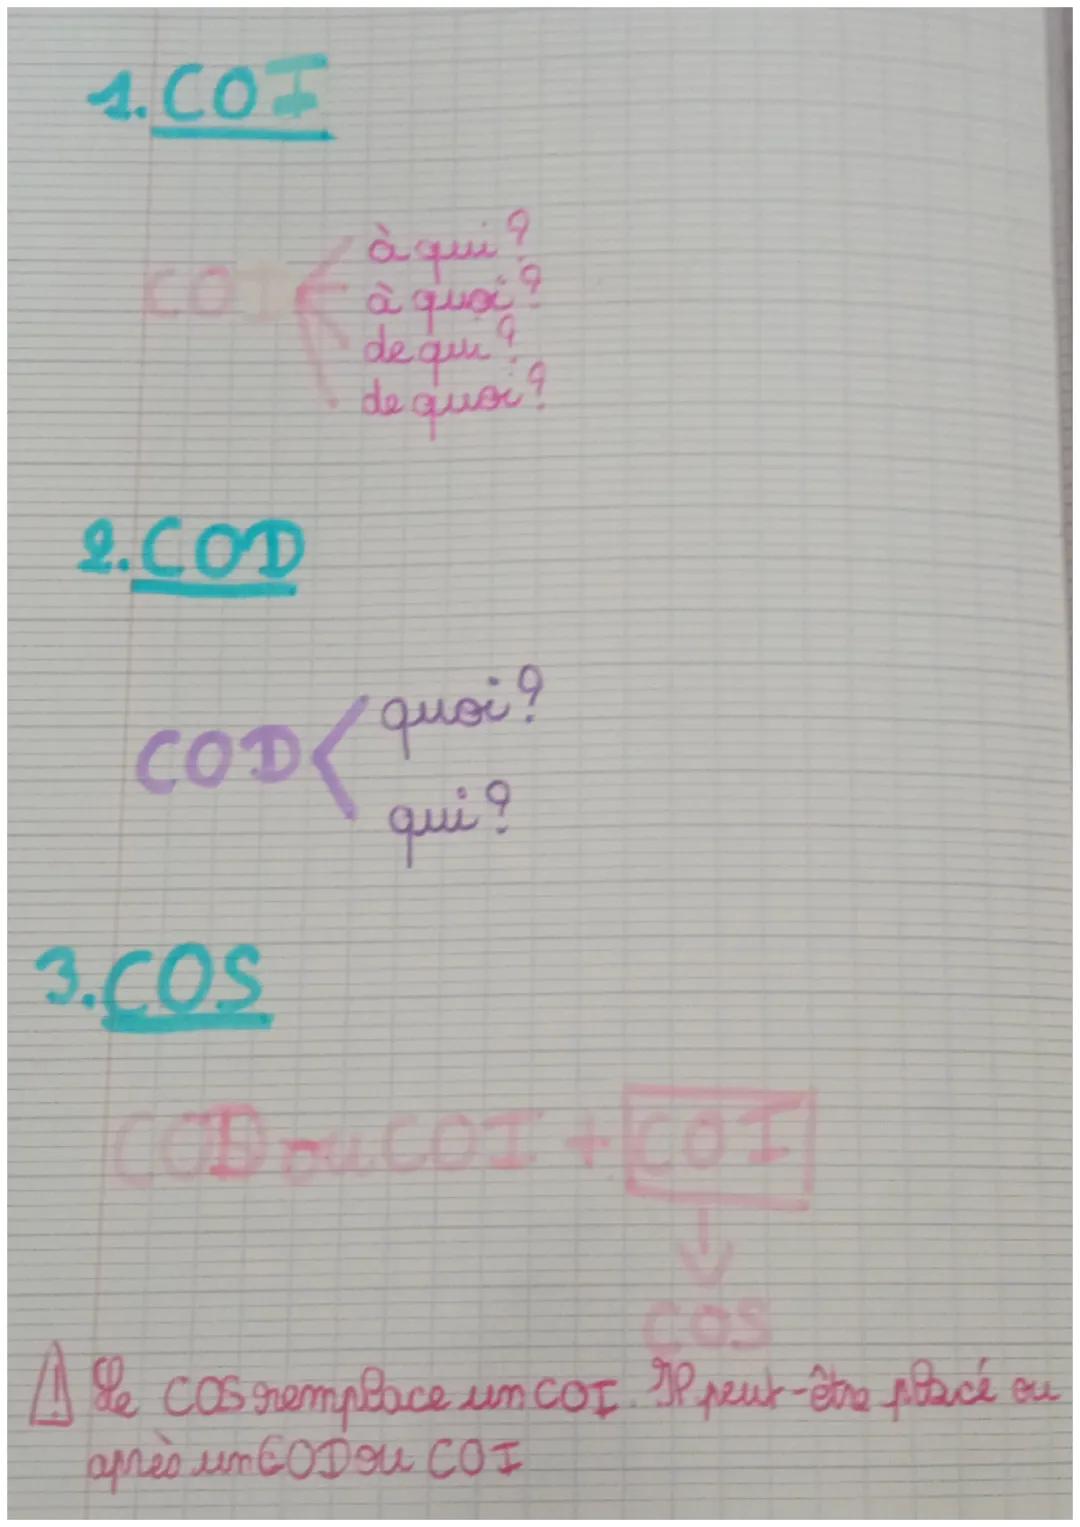 1. COI
à qui?
COI
à quoi?
de qui?
de quoi?
2. COD
quoi?
COD
qui?
3. COS
COD ou COI + COI
COS
Le COS remplace un COI. Il peut-être placé ou
après un COD ou COI